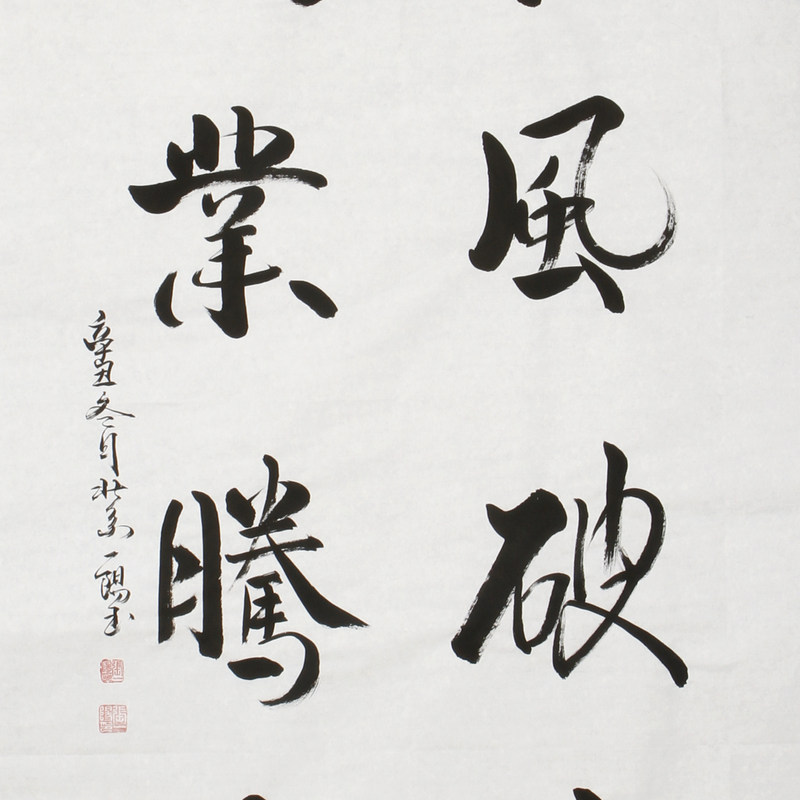 風破
業騰
辛丑冬月北京一陽書